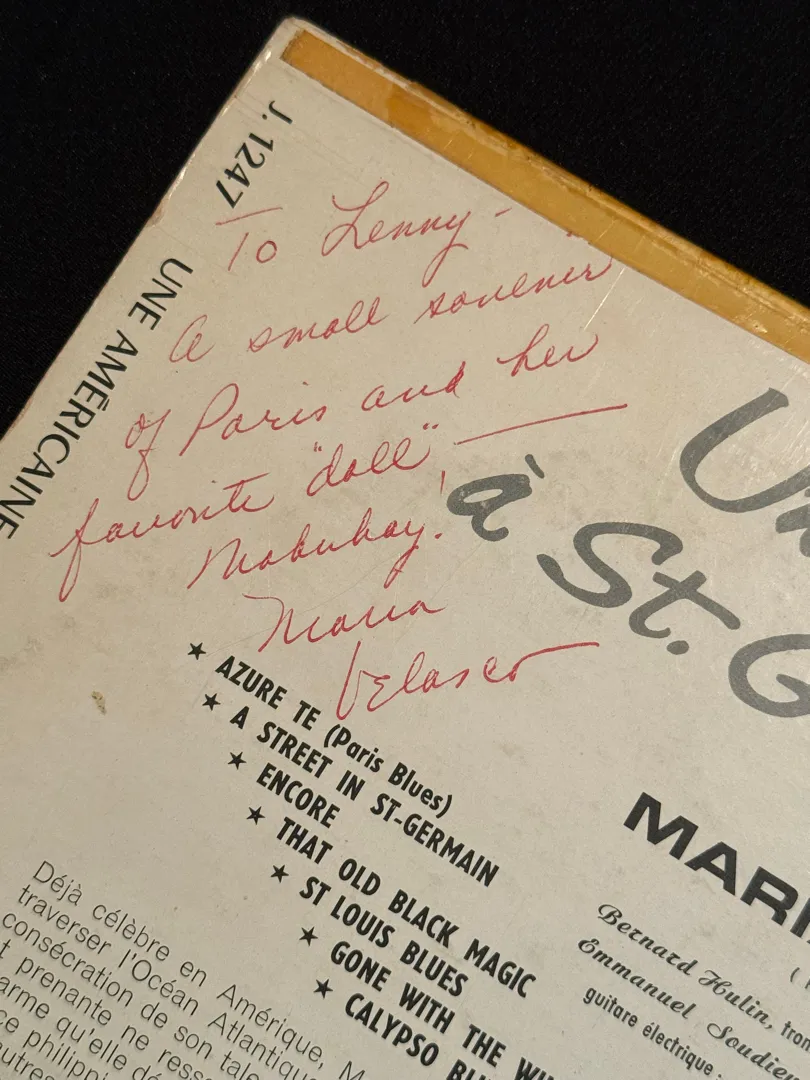 J. 1247 UNE AMÉRICAINE
To Lenny -
A small souvenir
of Paris and her
favorite "doll"
Mabuhay!
Maria
Velasco
à St. G
★ AZURE TE (Paris Blues)
★ A STREET IN ST-GERMAIN
★ ENCORE
★ THAT OLD BLACK MAGIC
★ ST LOUIS BLUES
★ GONE WITH THE WI
★ CALYPSO BL
MARI
Bernard Hulin, trom
Emmanuel Soudieu
guitare électrique.
Déjà célèbre en Amérique, M
traverser l'Océan Atlantiqu
consécration de son tale
t prenante ne ress
arme qu'elle dé
ce philippi
autres